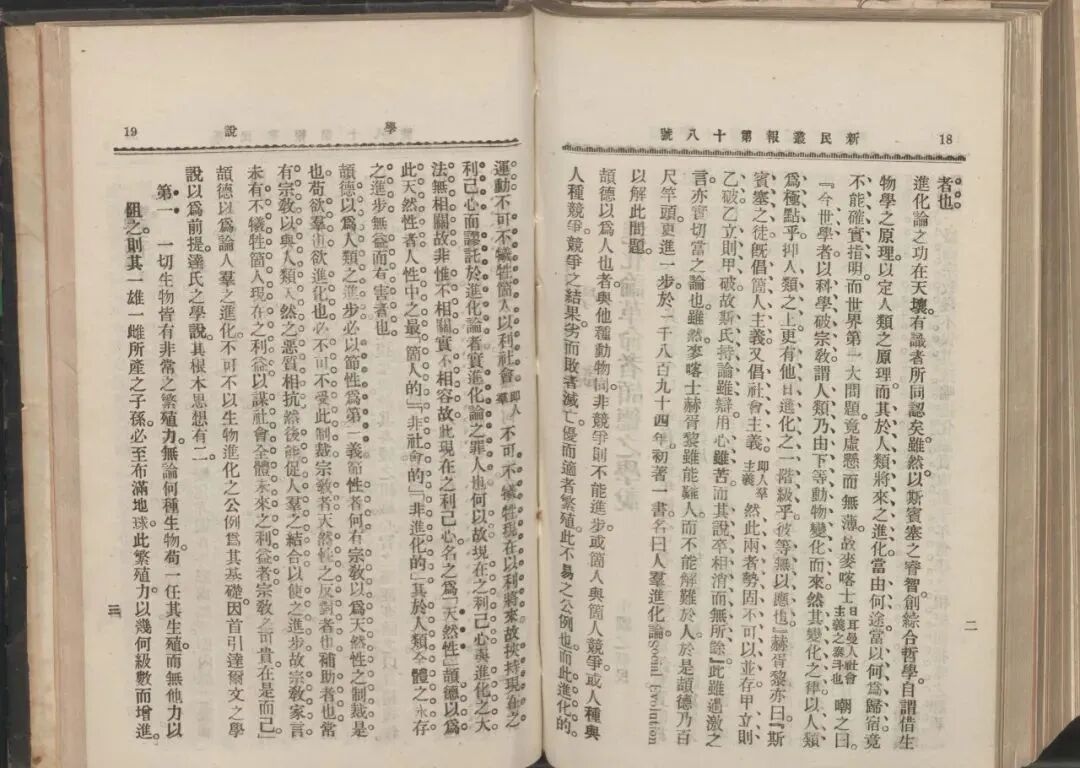 18
新民叢報第十八號
者也。
進化論之功在天壤。有識者所同認矣。雖然以斯賓塞之睿智創綜合哲學。自謂借生
物學之原理以定人類之原理。而其於人類將來之進化當由何途當以何爲歸宿。竟
不能確實指明。而世界第一大問題。竟虛懸而無薄。故麥喀士日耳曼人社會主義之泰斗也嘲之曰
『今世學者以科學破宗敎。謂人類乃由下等動物變化而來。然其變化之律以人類
爲極點乎。抑人類之上更有他日進化之一階級乎。彼等無以應也』赫胥黎亦曰『斯
賓塞之徒既倡箇人主義又倡社會主義。即人羣主義然此兩者勢固不可以並存。甲立則
乙破。乙立則甲破。故斯氏持論雖辯用心雖苦而其說卒相消而無所餘』此雖過激之
言。亦實切當之論也。雖然。麥喀士赫胥黎雖能難人。而不能解難於人。於是頡德乃百
尺竿頭更進一步。於一千八百九十四年初著一書名曰人羣進化論Social Evolution
以解此問題。
頡德以爲人也者與他種動物同。非競爭則不能進步。或箇人與箇人競爭。或人種與
人種競爭。競爭之結果。劣而敗者滅亡。優而適者繁殖。此不易之公例也。而此進化的
二
19
學說
運動不可不犧牲箇人以利社會即人羣不可不犧牲現在以利將來。故挾持現在之
利己心而謬託於進化論者實進化論之罪人也。何以故。現在之利己心與進化之大
法無相關故。非惟不相關實不相容故。此現在之利己心名之爲「天然性」頡德以爲
此天然性者人性中之最「箇人的」「非社會的」「非進化的」其於人類全體之永存
之進步無益而有害者也。
頡德以爲人類之進步必以節性爲第一義。節性者何有宗敎以爲天然性之制裁是
也。苟欲羣也欲進化也必不可不受此制裁。宗敎者天然性之反對者也補助者也。常
有宗敎以與人類天然之惡質相抗然後能促人羣之結合以使之進步。故宗敎家言
未有不犧牲箇人現在之利益以謀社會全體未來之利益者。宗敎之可貴在是而已。
頡德以爲論人羣之進化。不可不以生物進化之公例爲其基礎。因首引達爾文之學
說以爲前提。達氏之學說。其根本思想有二。
第一　一切生物皆有非常之繁殖力。無論何種生物苟一任其生殖而無他力以
阻之。則其一雄一雌所產之子孫。必至布滿地球。此繁殖力。以幾何級數而增進。
三